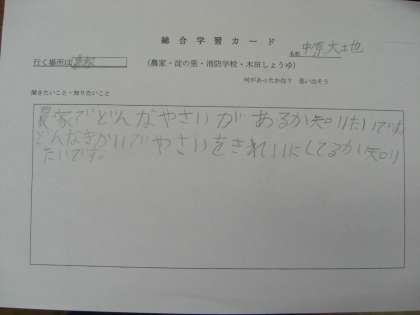 総合学習カード
名前 中原 大地
行く場所は 農家 (農家・淀の里・消防学校・木田しょうゆ)
何があったかな? 思い出そう
聞きたいこと・知りたいこと
農家でどんなやさいがあるか知りたいです。
どんなきかいでやさいをきれいにしてるか知り
たいです。